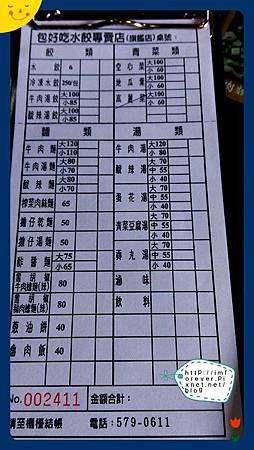 包好吃水餃專賣店(旗艦店)桌號:
餃類
青菜類
水餃 6
空心菜 大100 小60
冷凍水餃 250/包
地瓜葉 大100 小60
牛肉湯餃 大100 小85
高麗菜 大100 小60
酸辣湯餃 大100 小85
麵類
湯類
牛肉麵 大120 小110
牛肉湯 大120 小80
牛肉湯麵 大80 小70
酸辣湯 大70 中55 小40
酸辣麵 大80 小70
榨菜肉絲麵 65
蛋花湯 大70 中55 小40
擔仔乾麵 50
擔仔湯麵 50
青菜豆腐湯 大70 中55 小40
酢醬麵 大75 小65
貢丸湯 大70 小40
黑胡椒牛肉燴麵(辣) 80
滷味
黑胡椒豬肉燴麵(辣) 80
飲料
蔥油餅 40
魯肉飯 40
No. 002411 金額合計:
請至櫃檯結帳 電話:579-0611
http://imf
orever.Pi
xnet.net/
blog